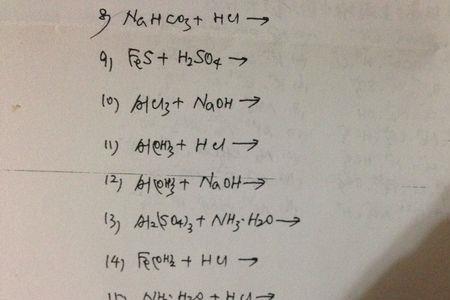 8) NaHCO3 + HCl →
9) FeS + H2SO4 →
10) AlCl3 + NaOH →
11) Al(OH)3 + HCl →
12) Al(OH)3 + NaOH →
13) Al2(SO4)3 + NH3·H2O →
14) Fe(OH)2 + HCl →
15) NH3·H2O + HCl →